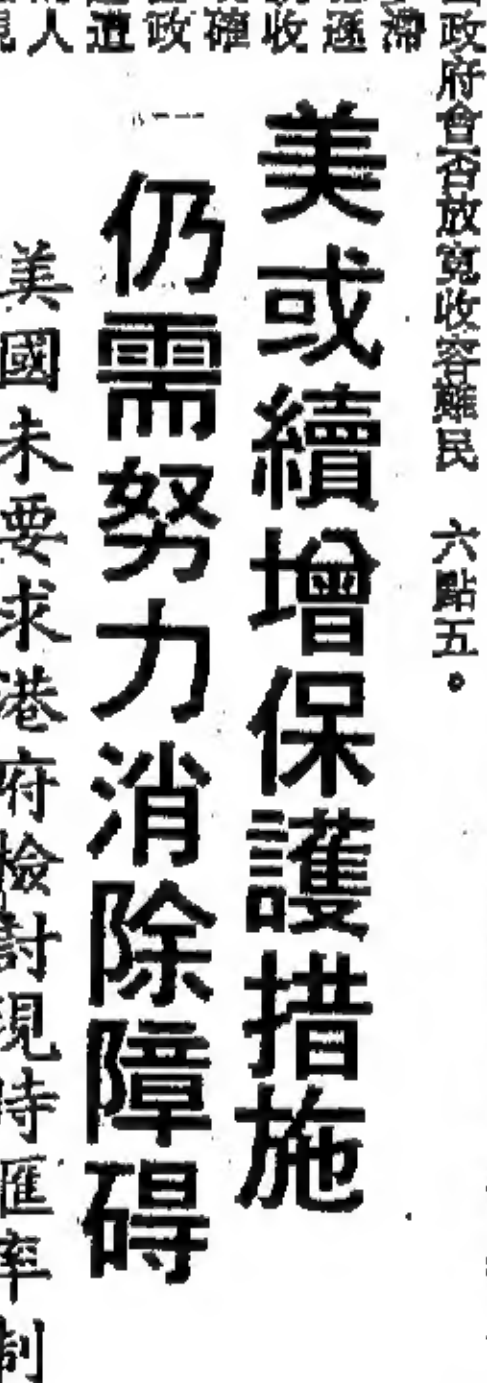 政府會否放寬收容難民　六點五。
美或續增保護措施
仍需努力消除障碍
美國未要求港府檢討現時匯率制